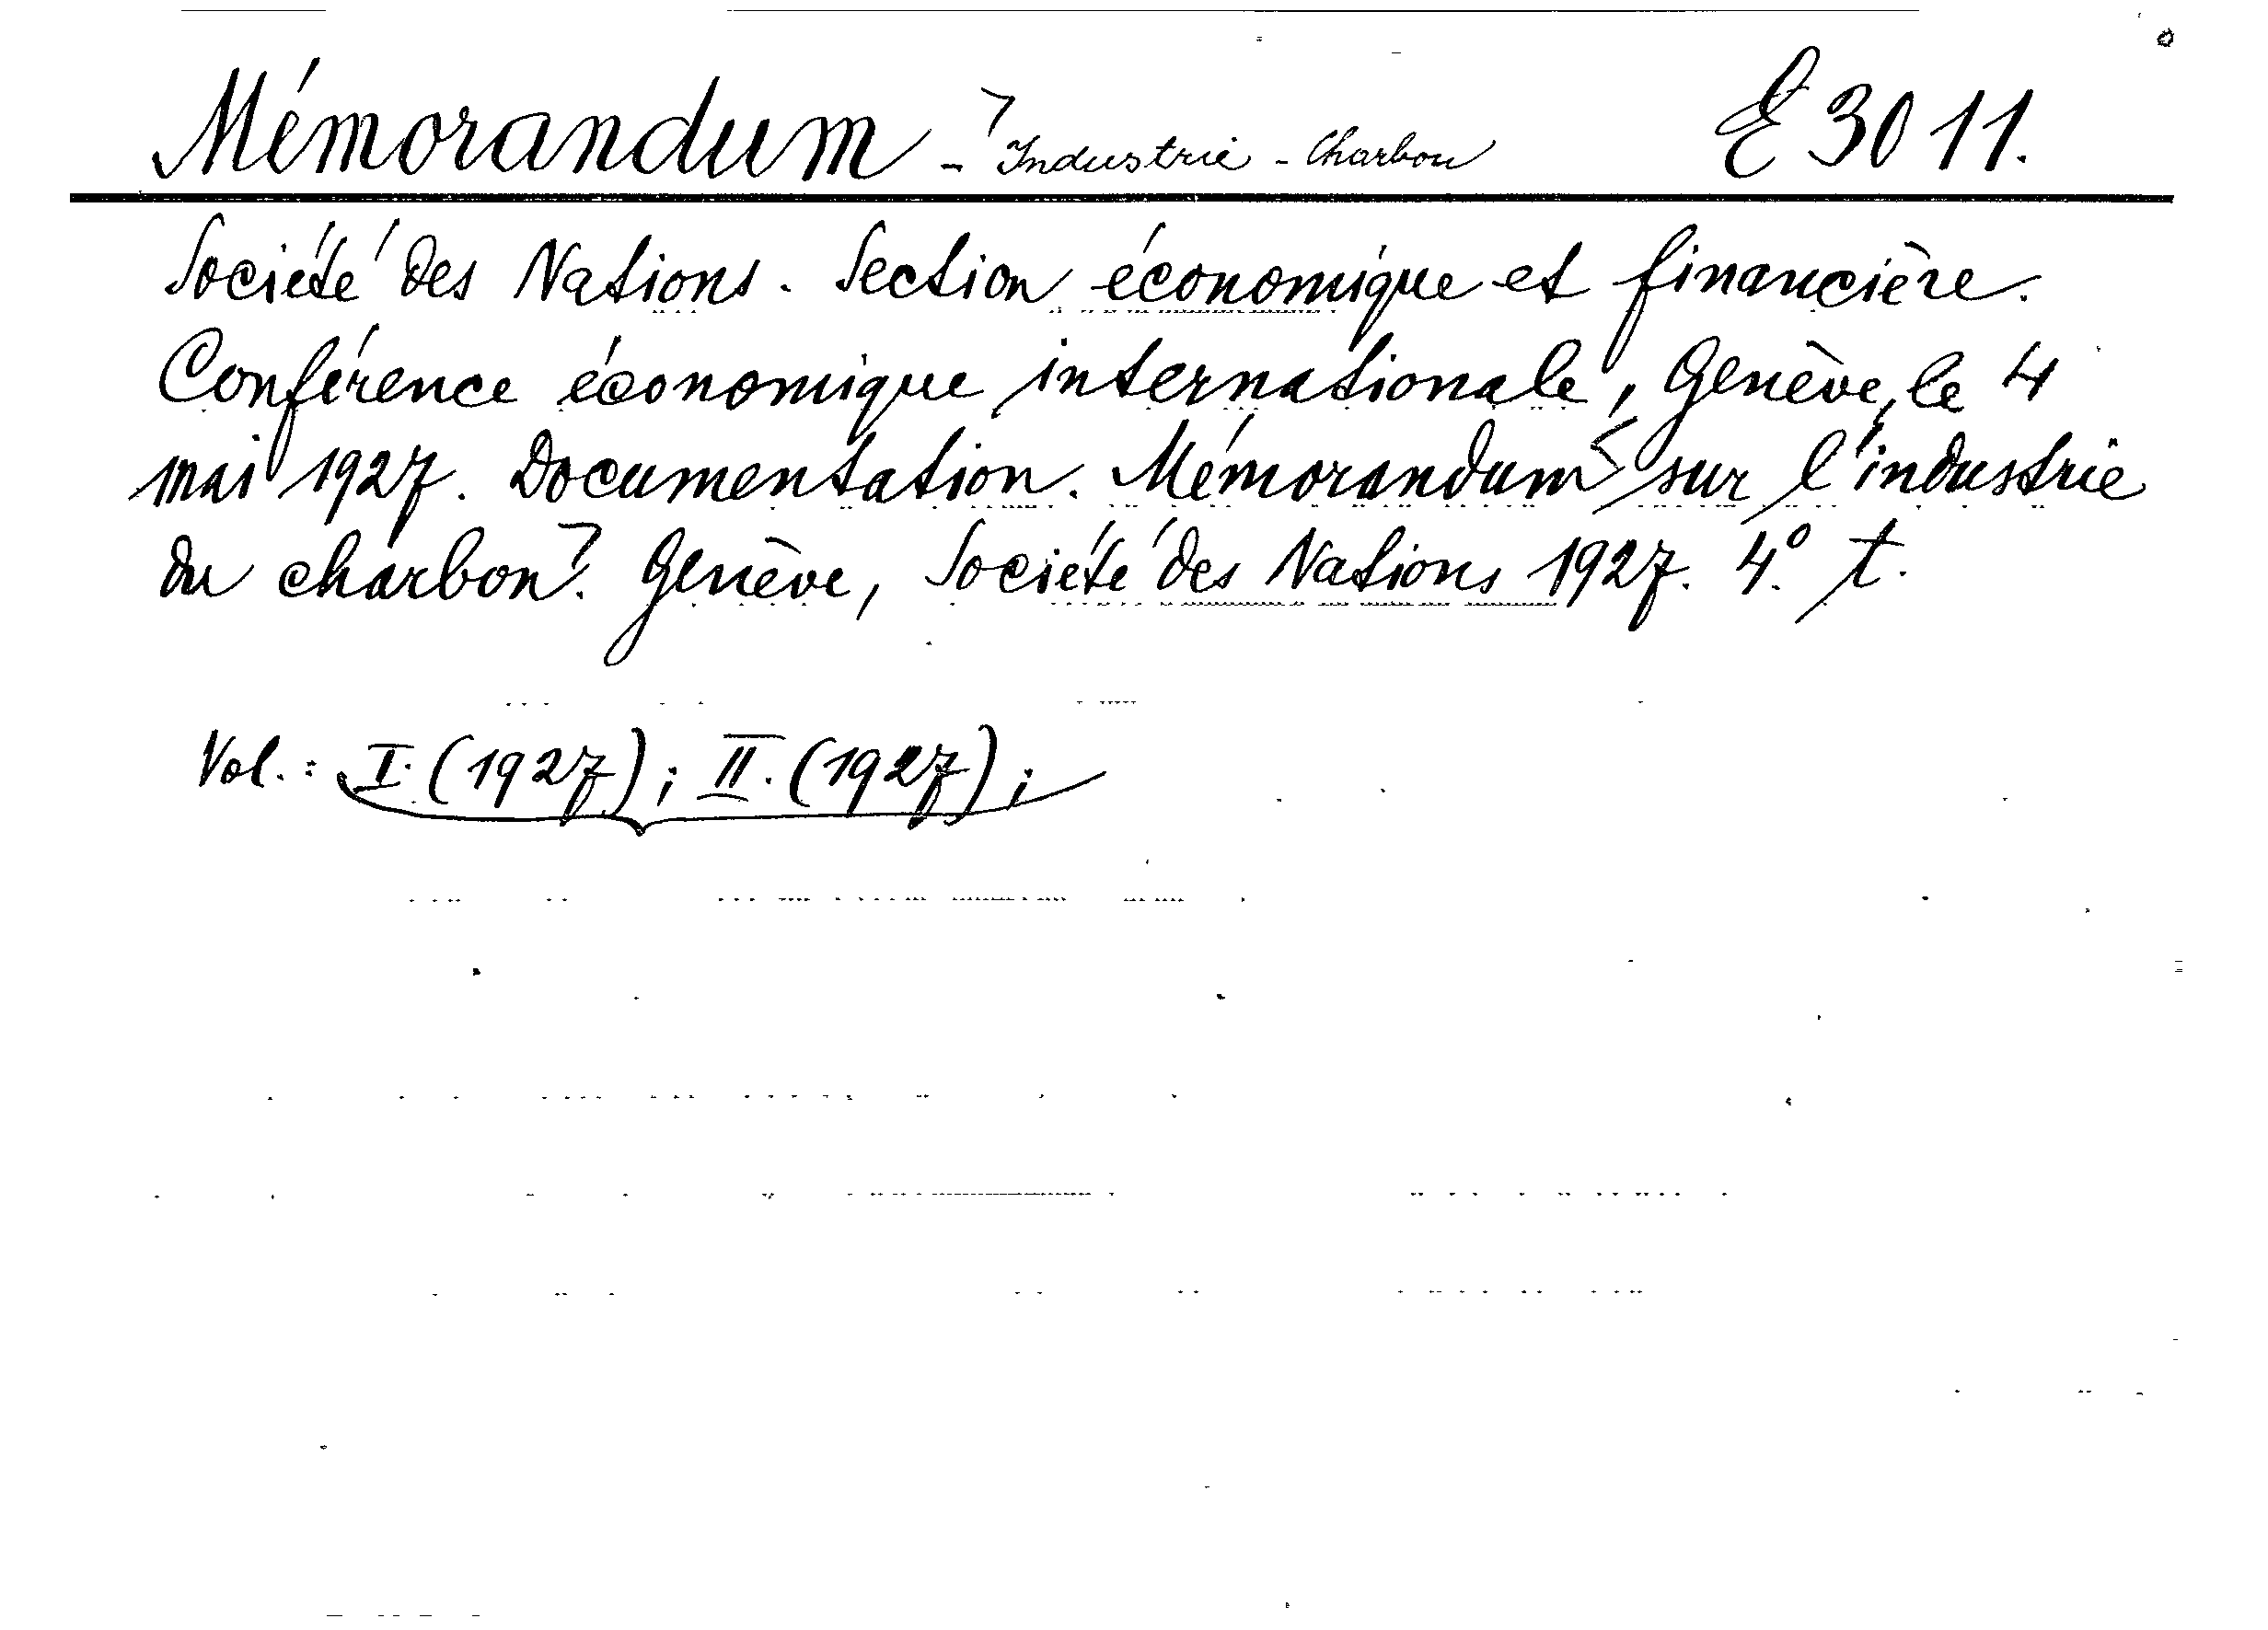 Mémorandum - Industrie - Charbon E 3011.
Société des Nations. Section économique et financière.
Conférence économique internationale, Genève, le 4
mai 1927. Documentation. Mémorandum sur l'industrie
du charbon. Genève, Société des Nations 1927. 4º. t.
Vol.: I. (1927); II. (1927);